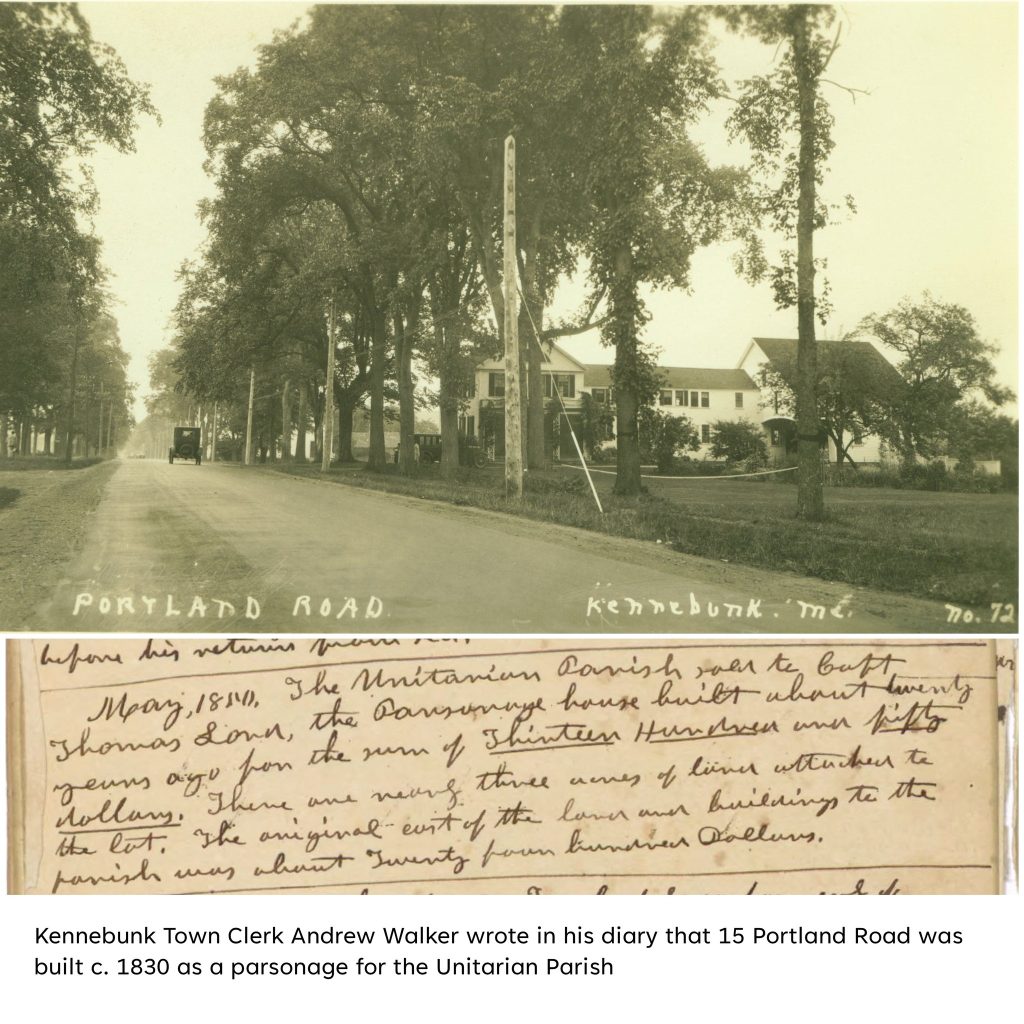 PORTLAND ROAD. Kennebunk. Me. No. 72
before his return from sea.
May, 1850. The Unitarian Parish sold to Capt
Thomas Lord, the Parsonage house built about twenty
years ago for the sum of Thirteen Hundred and fifty
dollars. There are nearly three acres of land attached to
the lot. The original cost of the land and buildings to the
parish was about Twenty four hundred Dollars.
Kennebunk Town Clerk Andrew Walker wrote in his diary that 15 Portland Road was
built c. 1830 as a parsonage for the Unitarian Parish